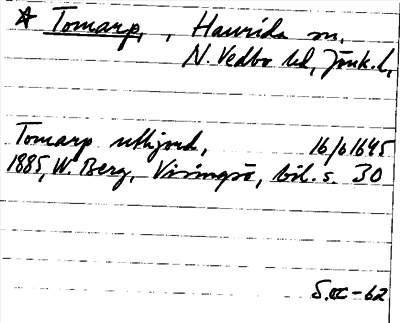 * Tomarp, , Haurida sn,
N. Vedbo hd, Jönk. l,
Tomarp uthjord, 16/6 1645
1885, W. Berg, Visingsö, bil. s. 30
S.OC-62